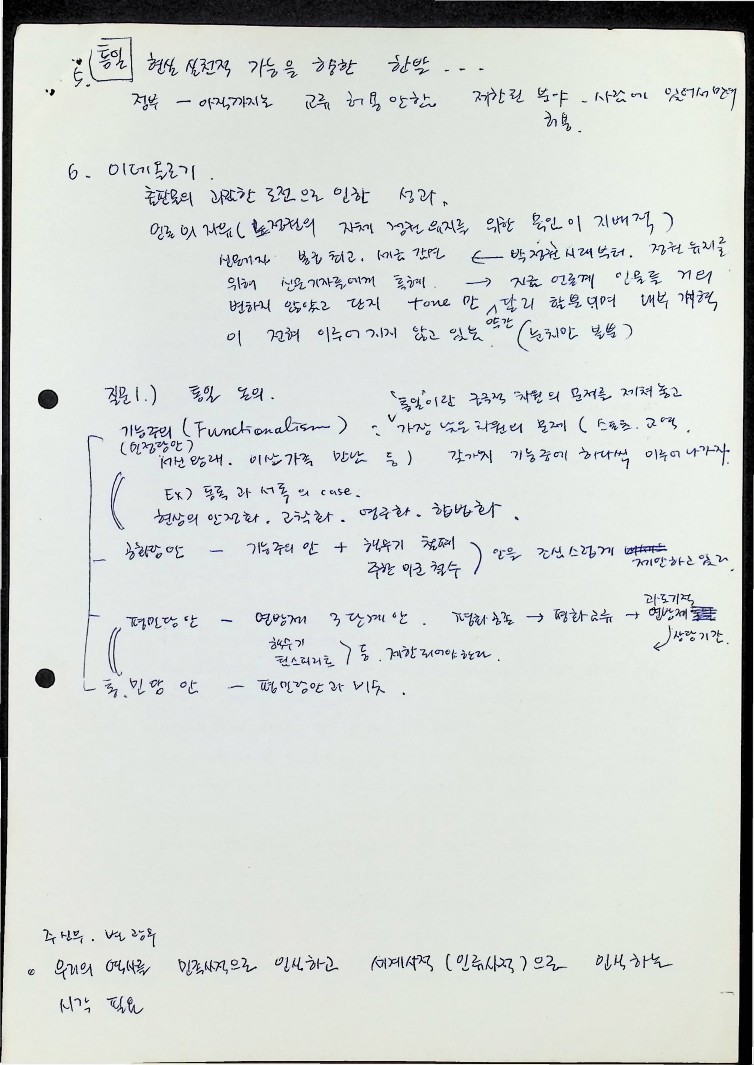 5. 통일 현실 실천적 가능을 향한 한발 ...
정부 - 아직까지는 교류 허용안함. 제한된 분야 - 사람에 있어서만
허용.
6. 이데올로기.
출판물의 과감한 도전으로 인한 성과.
언론의 자유( 정권의 자체 정권유지를 위한 목인이 지배적)
신문기자 봉급 최고. 세금 감면 ← 박정권시대부터. 정권 유지를
위해 신문기자들에게 특혜. → 지금 언론계 인물들 거의
변하지 않았고 단지 tone 만 약간 달리 할 뿐이며 내부 개혁
이 전혀 이루어지지 않고 있는 (눈치만 봄)
질문1.) 통일 논의.
"통일"이란 궁극적 차원의 문제를 제쳐 놓고
기능주의 (Functionalism) : 가장 낮은 차원의 문제 (스포츠. 교역.
(민정당안) 서신왕래. 이산가족 만남 등) 갖가지 기능중에 하나씩 이루어 나가자.
Ex) 동독과 서독의 case.
현상의 안전화. 고착화. 영구화. 합법화.
공화당안 - 기능주의 안 + 핵무기 철폐
주한 미군 철수 ) 안을 조심스럽게 제안하고 있다.
평민당안 - 연방제 3단계안. 평화공존 → 평화교류 → 과도기적 연방제
상당기간.
핵무기
팀스피리트 > 등. 제한되어야한다.
통.민당 안 - 평민당안과 비슷.
주신부. 변
• 우리의 역사를 민족사적으로 인식하고 세계사적 (인류사적)으로 인식하는
시각 필요